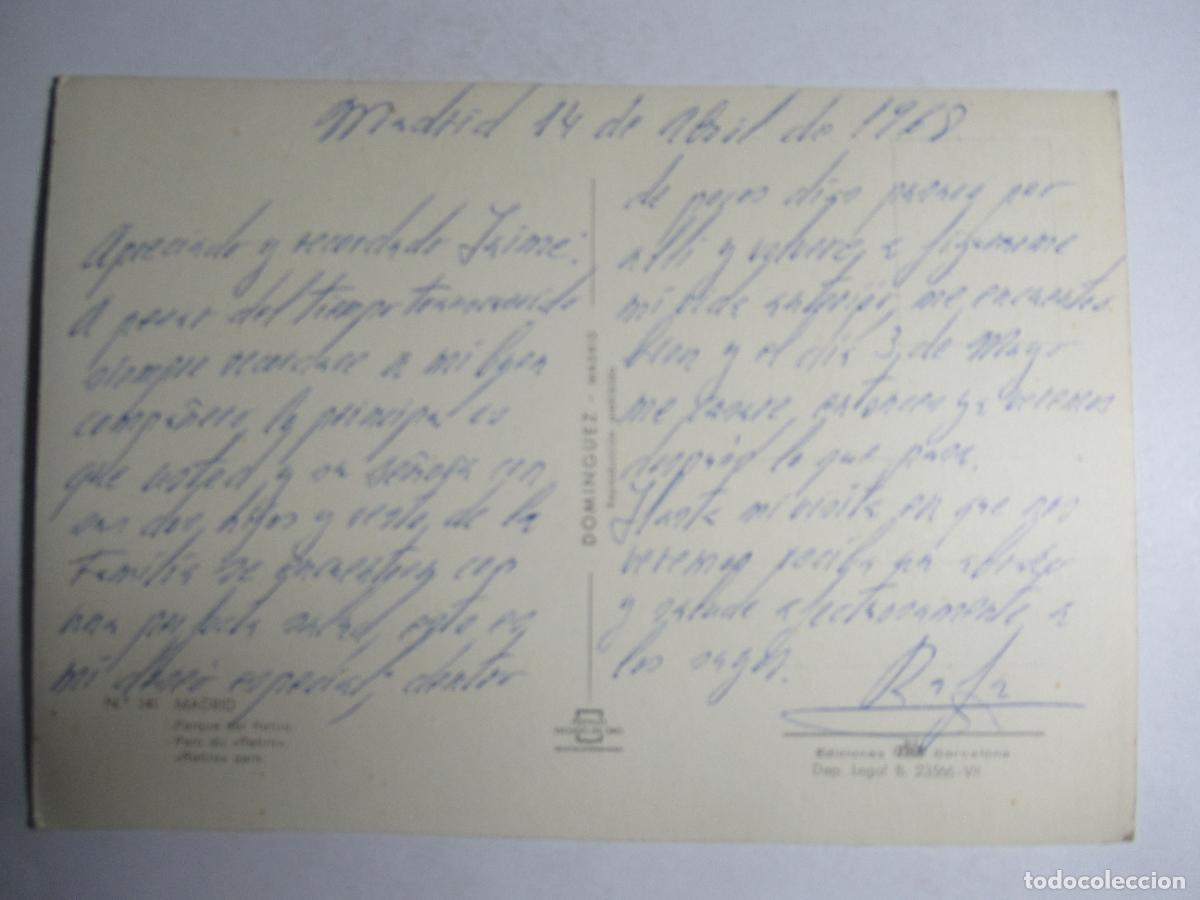 Madrid 14 de Abril de 1968
Apreciado y recordado Jaime:
A pesar del tiempo transcurrido
siempre recordare a mi buen
compañero, lo principal es
que usted y su señora con
sus dos hijos y resto de la
Familia se encuentren con
una perfecta salud, esto es
mi deseo especial; dentro
de pocos dias pasare por
alli y volvere a
mi vida anterior, me encuentro
bien y el dia 3 de Mayo
me casare, entonces ya veremos
después lo que pasa.
Hasta mi visita en que nos
veremos reciba un abrazo
y salude afectuosamente a
los suyos.
Rafa
DOMINGUEZ - MADRID
Reproducción prohibida
N.° 141 MADRID
Parque del Retiro.
Parc du «Retiro».
«Retiro» park.
Ediciones Barcelona
Dep. Legal B. 23566-VII
todocoleccion